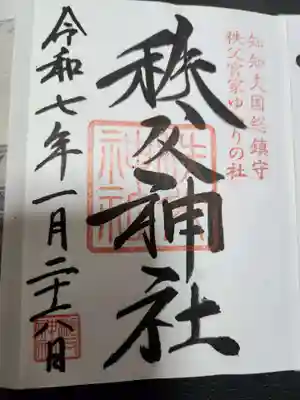 知知夫国総鎮守
秩父宮家ゆかりの社
秩父神社
秩父神社
令和七年一月二十八日